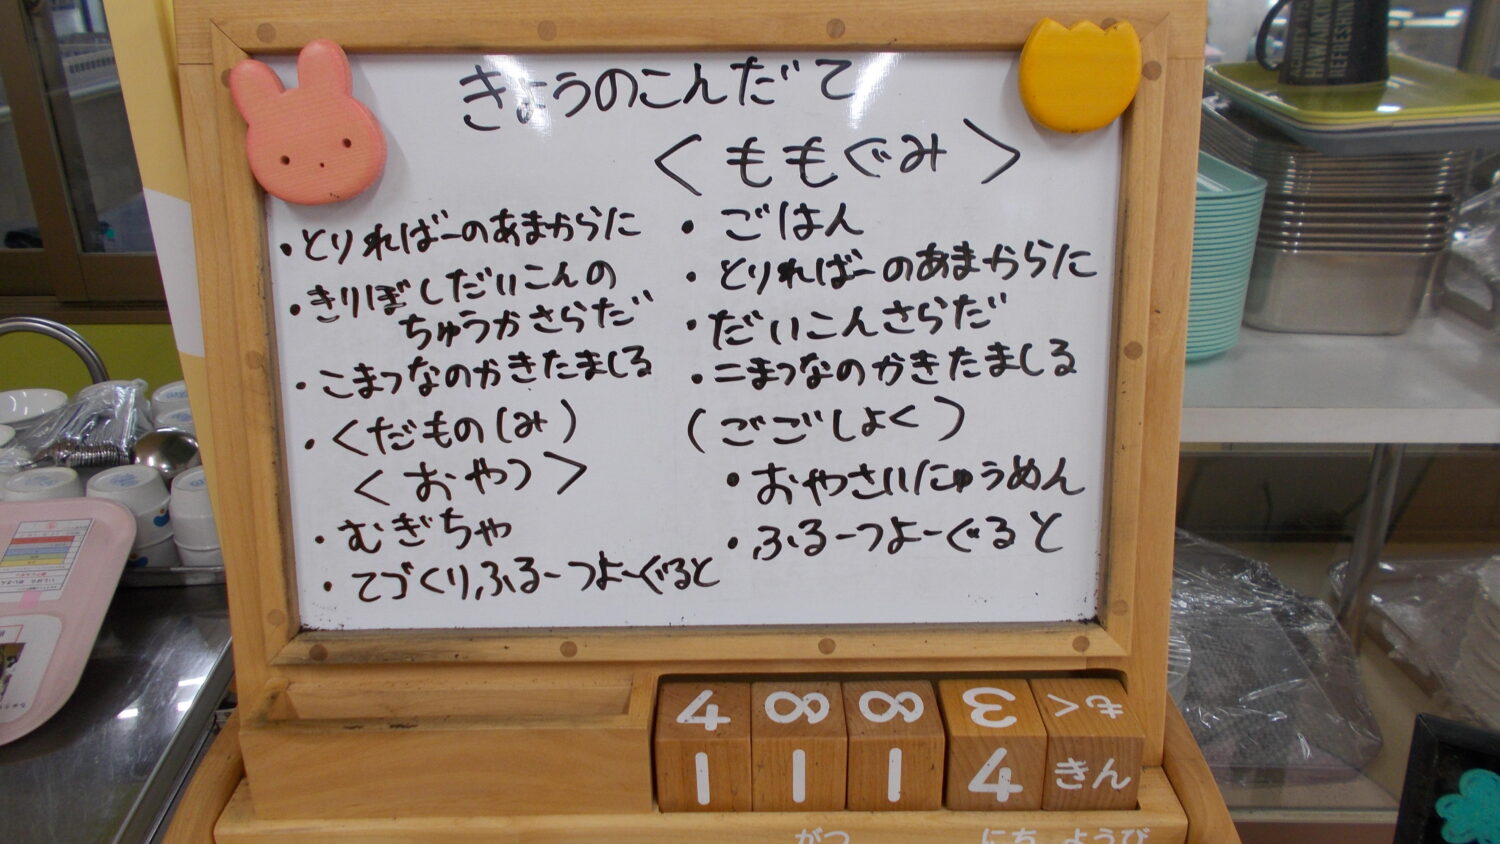 きょうのこんだて
<ももぐみ>
・とりればーのあまからに
・きりぼしだいこんの
ちゅうかさらだ
・こまつなのかきたましる
・くだもの(み)
<おやつ>
・むぎちゃ
・てづくりふるーつよーぐると
・ごはん
・とりればーのあまからに
・だいこんさらだ
・こまつなのかきたましる
(ごごしょく)
・おやさいにゅうめん
・ふるーつよーぐると
4 8 8 3 もく
1 1 1 4 きん
がつ にち ようび
HAWAII
REFRESHIN